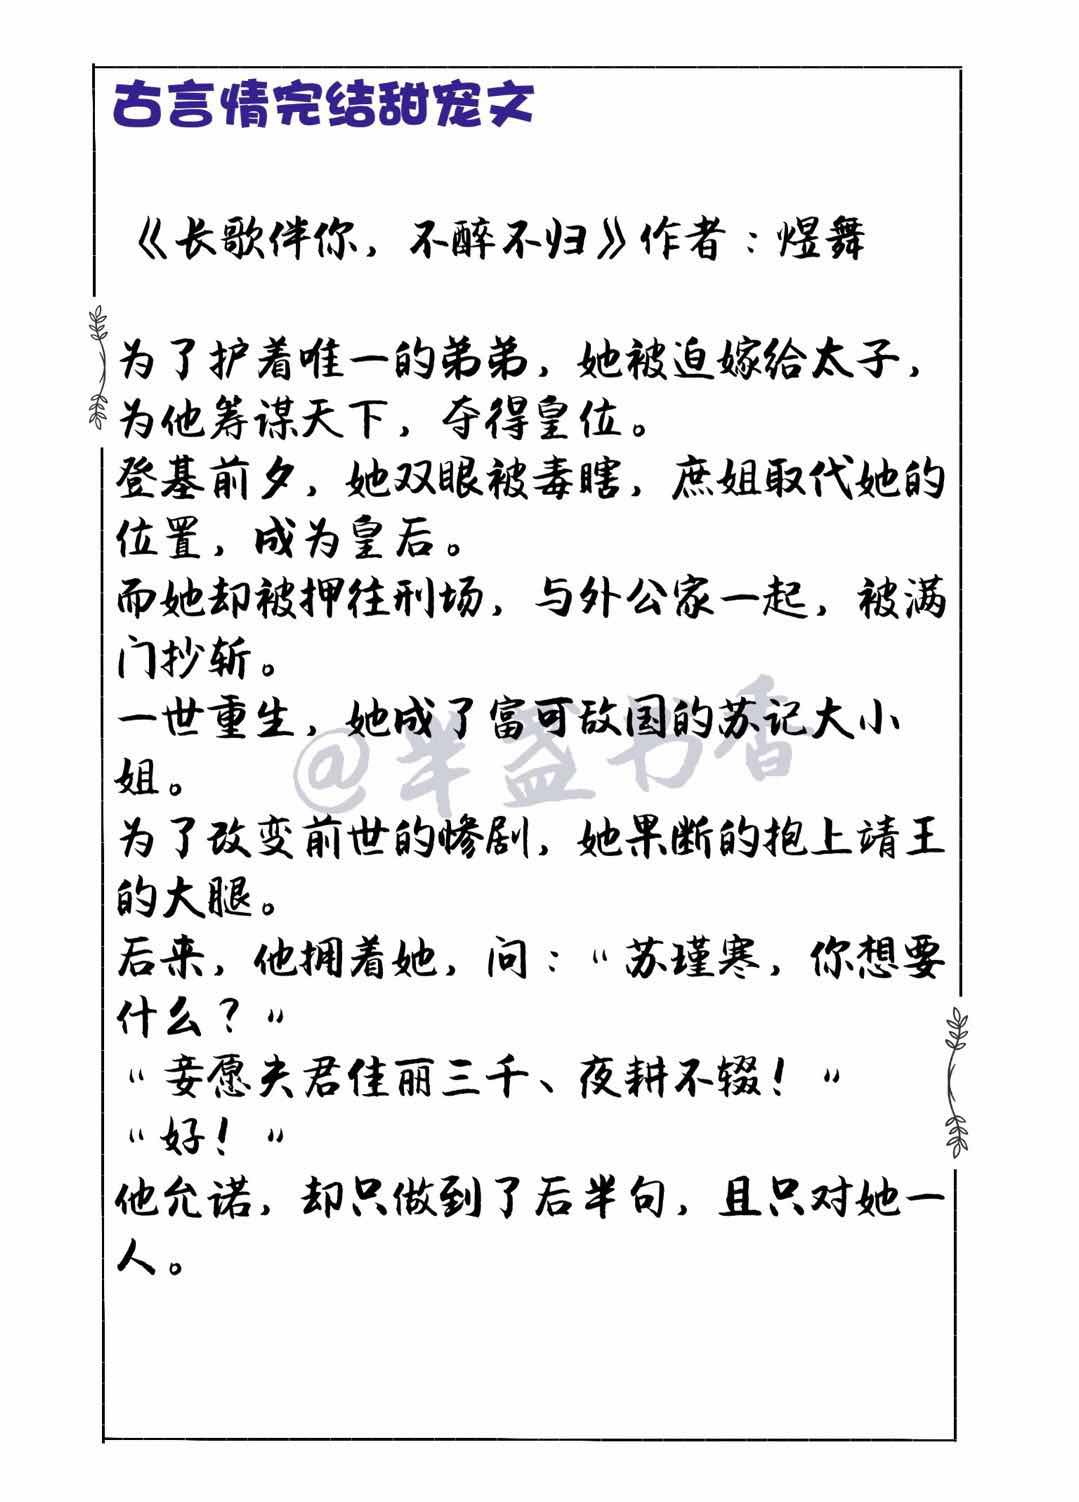 古言情完结甜宠文
《长歌伴你，不醉不归》作者：煜舞
为了护着唯一的弟弟，她被迫嫁给太子，
为他筹谋天下，夺得皇位。
登基前夕，她双眼被毒瞎，庶姐取代她的
位置，成为皇后。
而她却被押往刑场，与外公家一起，被满
门抄斩。
一世重生，她成了富可敌国的苏记大小
姐。
@半盏书香
为了改变前世的惨剧，她果断的抱上靖王
的大腿。
后来，他拥着她，问：“苏瑾寒，你想要
什么？”
“妾愿夫君佳丽三千、夜耕不辍！”
“好！”
他允诺，却只做到了后半句，且只对她一
人。